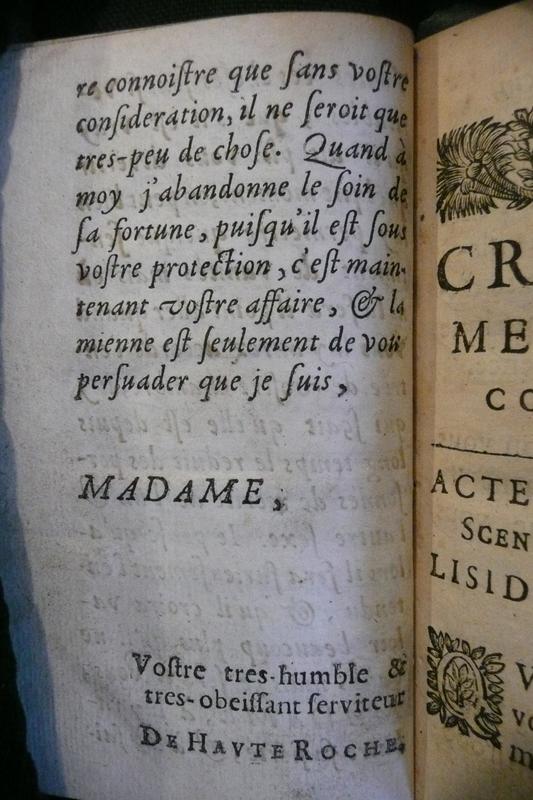 re connoiſtre que ſans voſtre
conſideration, il ne ſeroit que
tres-peu de choſe. Quand à
moy j'abandonne le ſoin de
ſa fortune, puiſqu'il eſt ſous
voſtre protection, c'eſt main-
tenant voſtre affaire, & la
mienne eſt ſeulement de vous
perſuader que je ſuis,
MADAME,
Voſtre tres-humble &
tres-obeiſſant ſerviteur
DE HAVTE ROCHE.
CR
ME
CO
ACTE
SCEN
LISID
V
vo
m